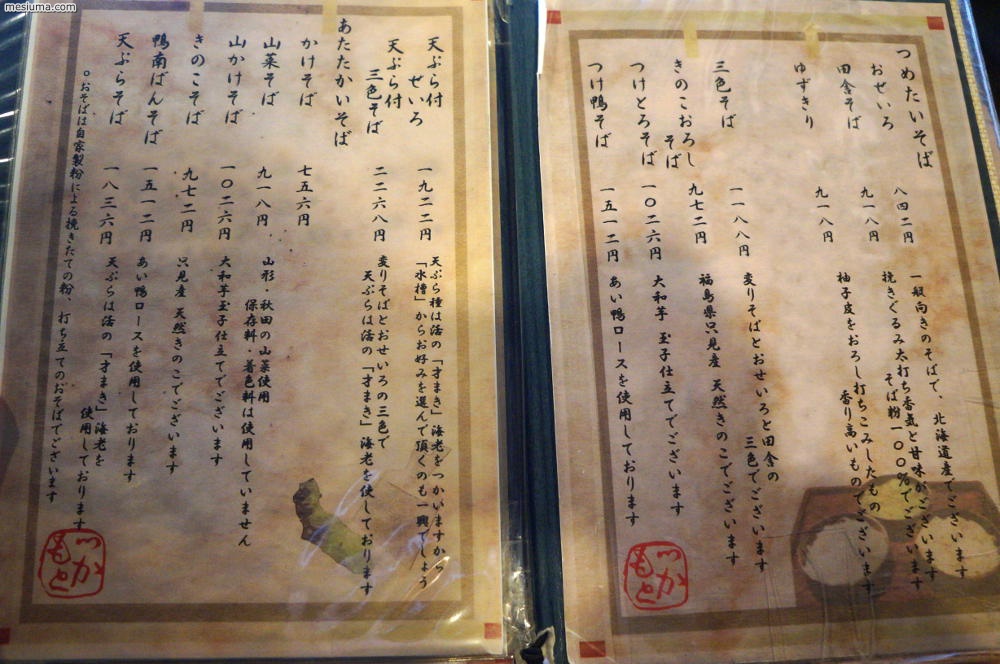 mesiuma.com
つめたいそば
おせいろ
八四二円
一般向きのそばで、北海道産でございます
田舎そば
九一八円
挽きぐるみ太打ち香気と甘味がございます
そば粉一〇〇%でございます
ゆずきり
九一八円
柚子皮をおろし打ちこみしたもの
香り高いものでございます
三色そば
一一八八円
変りそばとおせいろと田舎の
三色でございます
きのこおろし
そば
九七二円
福島県只見産 天然きのこでございます
つけとろそば
一〇二六円
大和芋 玉子仕立てでございます
つけ鴨そば
一五一二円
あい鴨ロースを使用しております
つかもと
天ぷら付
せいろ
一九二二円
天ぷら種は活の「才まき」海老をつかいますから
「水槽」からお好みを選んで頂くのも一興でしょう
天ぷら付
三色そば
二二六八円
変りそばとおせいろの三色で
天ぷらは活の「才まき」海老を使しております
あたたかいそば
かけそば
七五六円
山菜そば
九一八円
山形・秋田の山菜使用
保存料・着色料は使用していません
山かけそば
一〇二六円
大和芋玉子仕立てでございます
きのこそば
九七二円
只見産 天然きのこでございます
鴨南ばんそば
一五一二円
あい鴨ロースを使用しております
天ぷらそば
一八三六円
天ぷらは活の「才まき」海老を
使用しております
○おそばは自家製粉による挽きたての粉、打ち立てのおそばでございます
つかもと